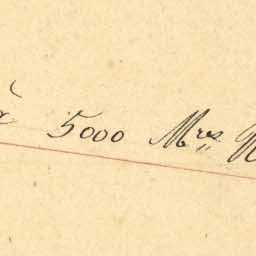 à 5000 Mrs